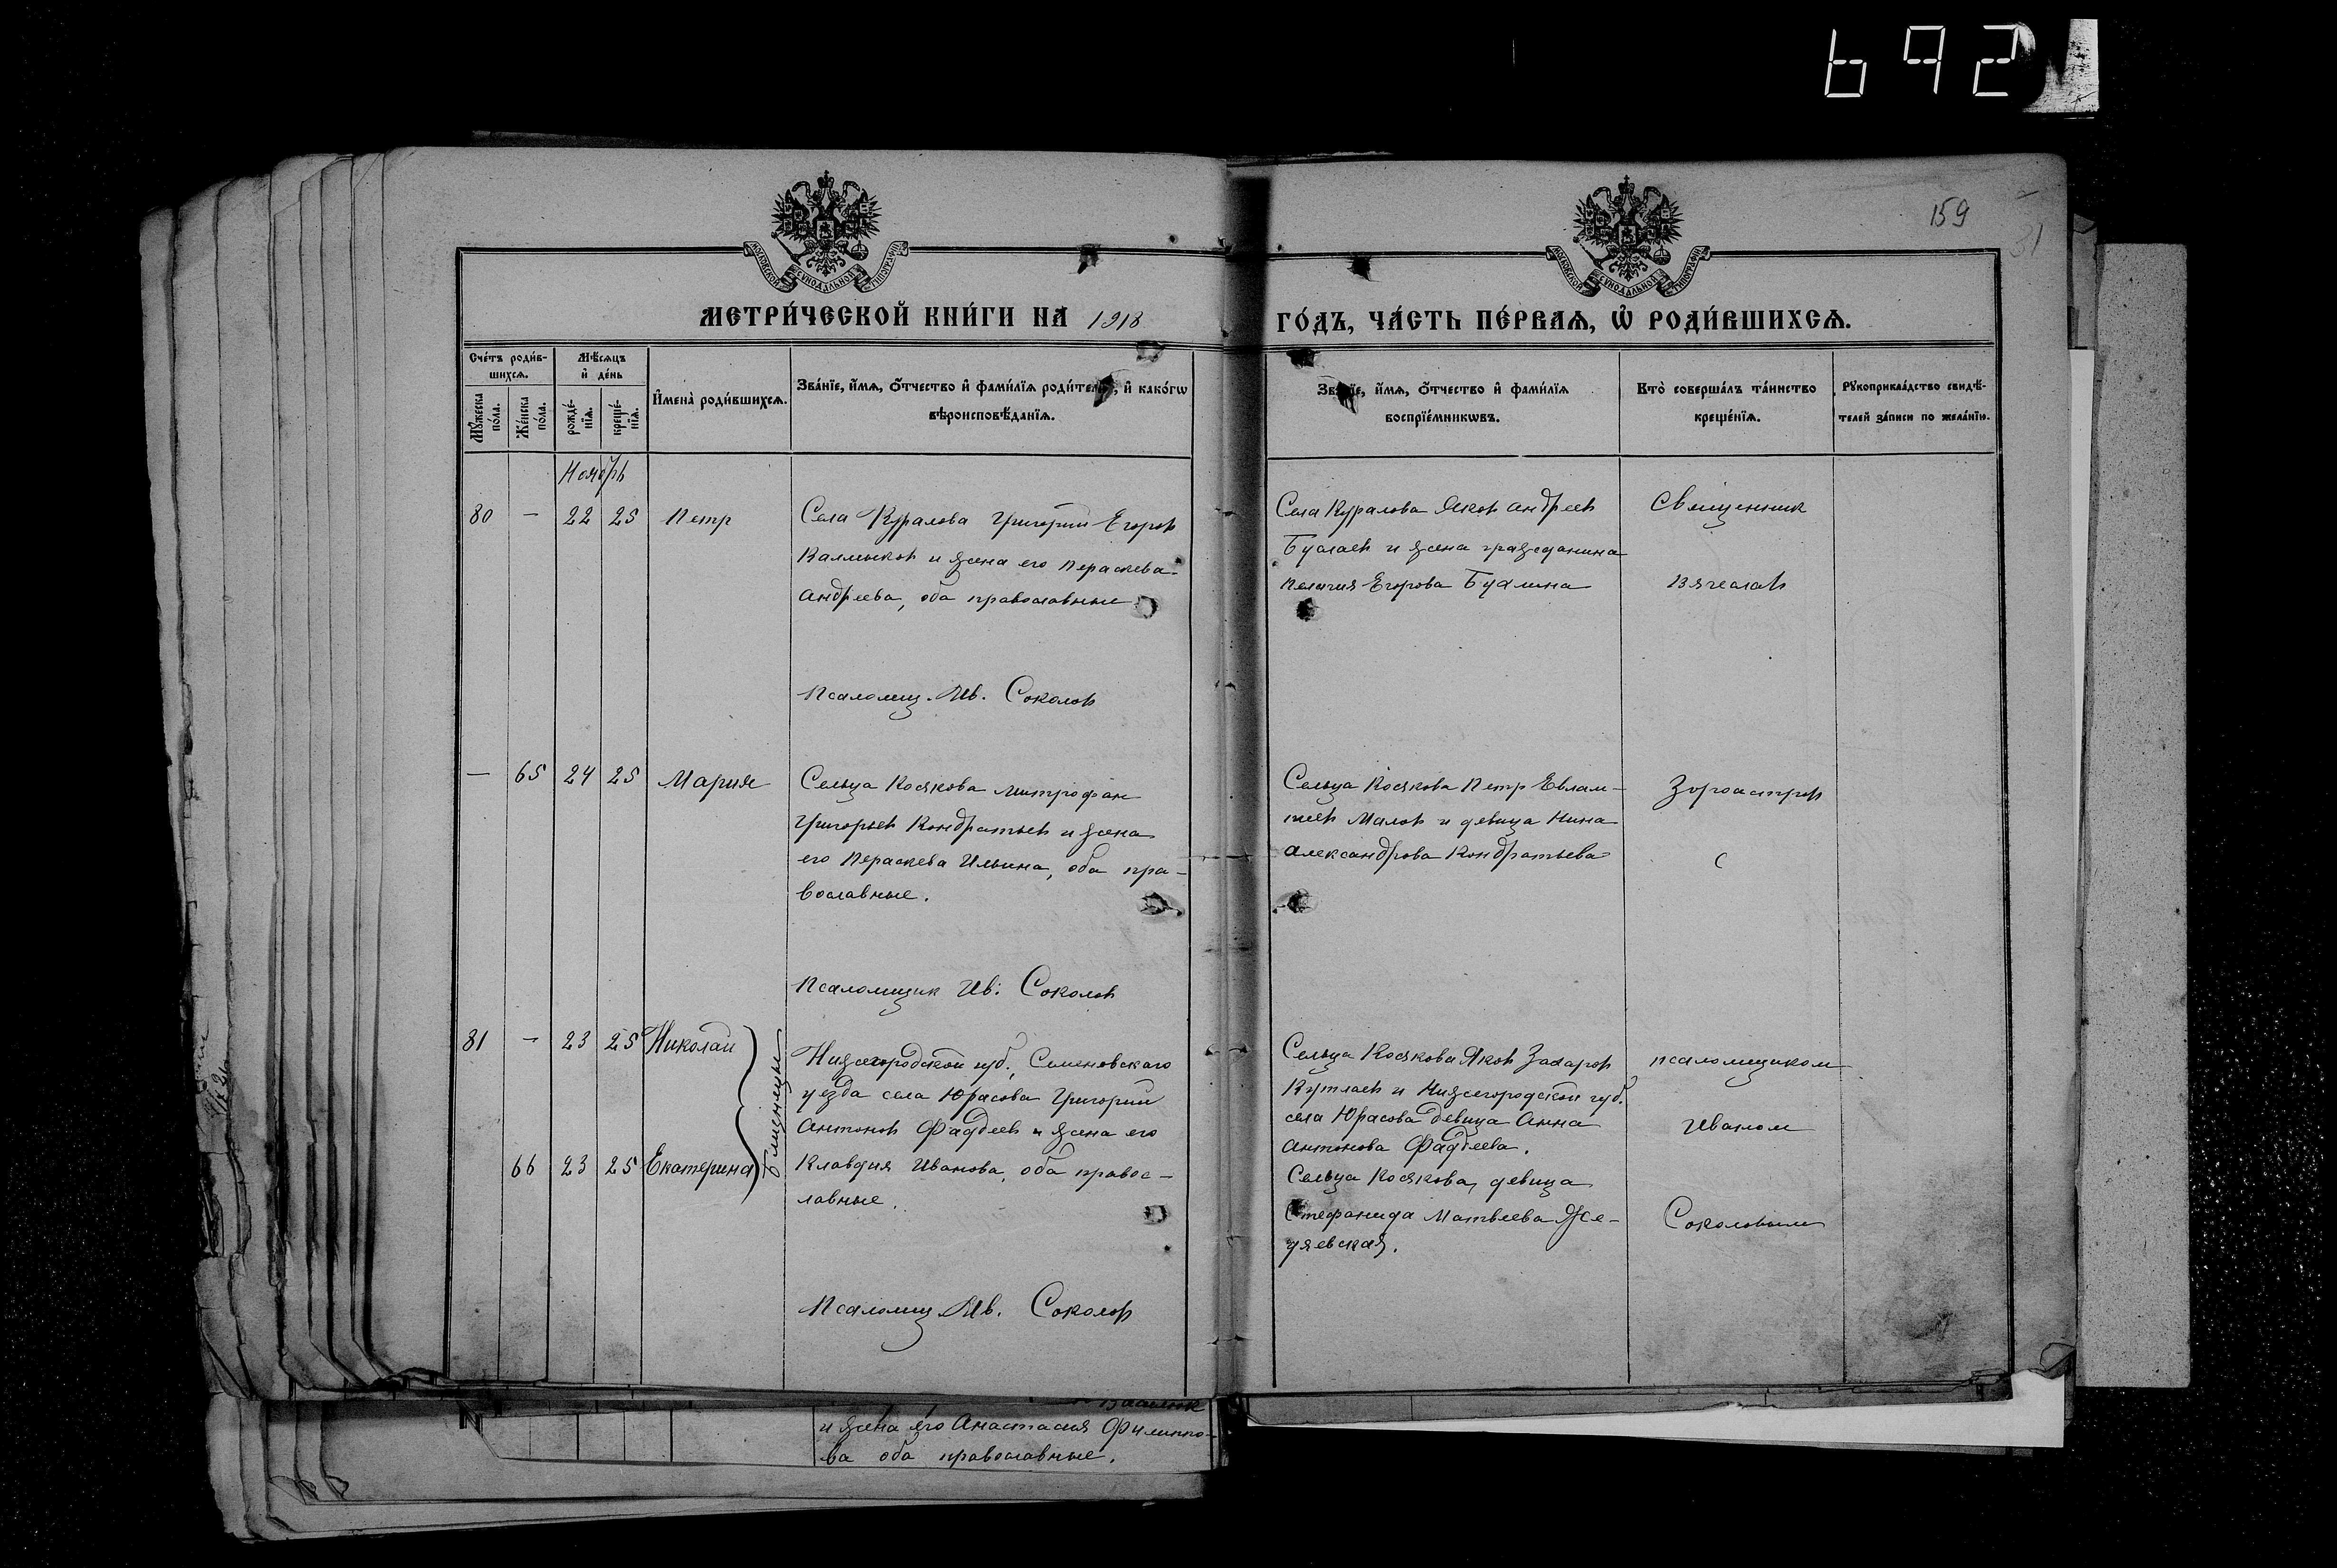 692
159
31
МОСКОВСКОЙ СѴНОДАЛЬНОЙ ТИПОГРАФІИ
МОСКОВСКОЙ СѴНОДАЛЬНОЙ ТИПОГРАФІИ
МЕТРИ́ЧЕСКОЙ КНИ́ГИ НА 1918
ГО́ДЪ, ЧА́СТЬ ПЕ́РВАѦ, Ѡ҆ РОДИ́ВШИХСѦ.
Сче́тъ роди́в-
шихсѧ.
Мѣ́сѧцъ
и҆ де́нь
Мꙋ́жеска по́ла.
Же́нска по́ла.
рожде́-
нїѧ.
креще́-
нїѧ.
И҆мена̀ роди́вшихсѧ.
Зва́нїе, и҆́мѧ, о҆́тчество и҆ фами́лїѧ роди́телей, и҆ како́гѡ
вѣроисповѣ́данїѧ.
Зва́нїе, и҆́мѧ, о҆́тчество и҆ фами́лїѧ
воспрїе́мникѡвъ.
Кто̀ соверша́лъ та́инство
креще́нїѧ.
Рꙋкоприкла́дство свидѣ́-
телей за́писи по жела́нїю.
Ноябрь
80 - 22 25 Петр
Села Куралова Григорий Егоров
Калмыков и жена его Параскева
Андреева, оба православные.
Псаломщ. Ив. Соколов
Села Куралова Яков Андреев
и жена гражданина
Пелагия Егорова
Священник
Вячеслав
- 65 24 25 Мария
Сельца Косякова Митрофан
Григорьев Кондратьев и жена
его Параскева Ильина, оба пра-
вославные.
Псаломщик Ив. Соколов
Сельца Косякова Петр Евлам-
пиев Малов и девица Нина
Александрова Кондратьева
Зороастров
с
81 - 23 25 Николай
66 23 25 Екатерина
близнецы
Нижегородской губ., Семеновскаго
уезда села Юрасова Григорий
Антонов Фаддеев и жена его
Клавдия Иванова, оба правос-
лавные.
Псаломщ. Ив. Соколов
Сельца Косякова Яков Захаров
Кутлаев и Нижегородской губ.
села Юрасова девица Анна
Антонова Фаддеева.
Сельца Косякова, девица
Стефанида Матвеева
псаломщиком
Иваном
Соколовым
и жена его Анастасия Филиппо-
ва оба православные.